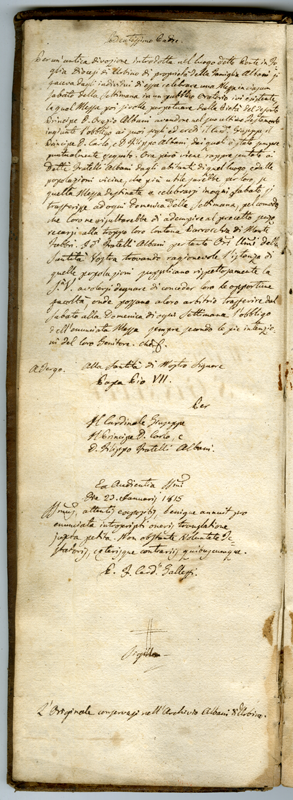 Beatissimo Padre
Per un'antica divozione introdotta nel luogo detto Monte in Fo-
glia diocesi di Urbino di proprietà della famiglia Albani si
faceva dagl'individui di essa celebrare una Messa in ciascun
Sabato della settimana in un pubblico Oratorio ivi esistente
la qual Messa poi si volle perpetuare dalla Bontà del defonto
Principe D. Orazio Albani avendone nel suo ultimo Testamento
ingiunto l'obbligo ai suoi figli ed eredi il Card. Giuseppe il
Principe D. Carlo, e D. Filippo Albani dai quali è stato sempre
puntualmente eseguito. Ora però viene rappresentato ai
detti Fratelli Albani dagli abitanti di quel luogo, e dalle
popolazioni vicine, che più utile sarebbe per essi, se
quella Messa destinata a celebrarsi in ogni Sabato, si
trasferisse ad ogni Domenica della settimana, pel comodo
che loro ne risulterebbe di adempire al precetto senza
recarsi alla troppo loro lontana Parrocchia di Monte
Fabbri. I detti Fratelli Albani pertanto Ori Umi della
Santità Vostra trovando ragionevole l'istanza di
quelle popolazioni supplicano rispettosamente la
S. V. a volersi degnare di conceder loro le opportune
facoltà, onde possano a loro arbitrio trasferire dal
Sabato alla Domenica di ogni Settimana l'obbligo
dell'enunciata Messa sempre secondo la pia intenzio-
ne del loro Genitore. Che &.
A Tergo. Alla Santità di Nostro Signore
Papa Pio VII.
Per
Il Cardinale Giuseppe
Il Principe D. Carlo, e
D. Filippo Fratelli Albani.
Ex Audientia SSmi
Die 23. Januarij 1815
SSmus, attentis expositis, benigne annuit pro
enunciata intropscripti oneris translatione
juxta petita. Non obstante voluntate Te-
statoris, ceterisque contrariis quibuscumque.
F. J. Card. Galleffi.
L'Originale conservasi nell'Archivio Albani d'Urbino.